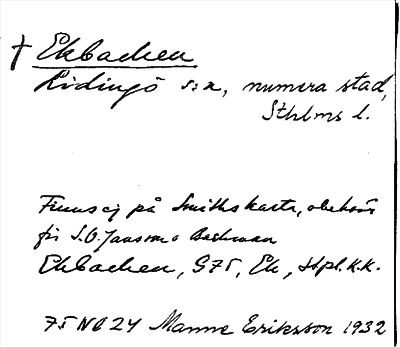 † Ekbacken
Lidingö s:n, numera stad,
Sthlms l.
Finns ej på Smiths karta,
för S.O. Jansson o Backman
Ekbacken, G75, Ek, Hpl. K.K.
75 NO 24 Manne Eriksson 1932